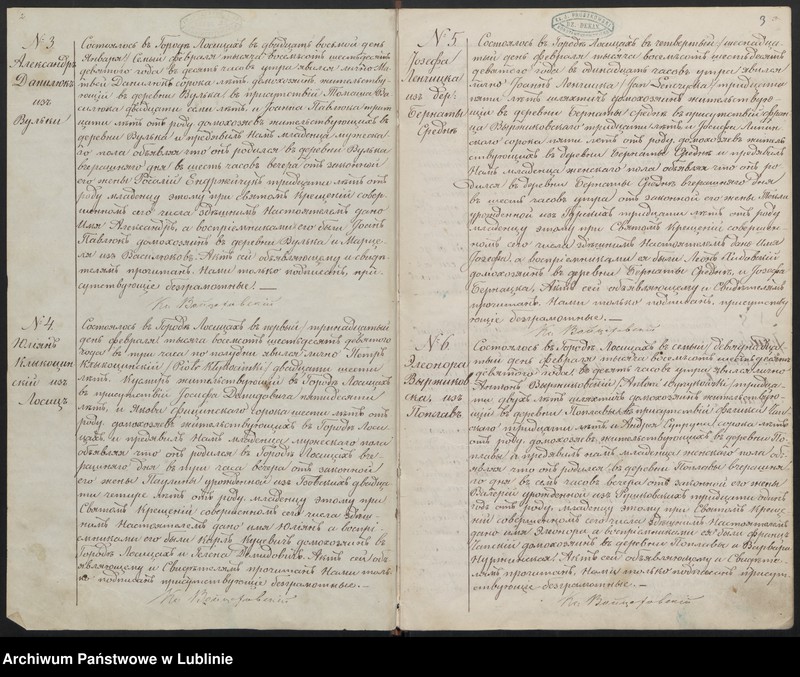 2
№ 3
Александръ
Данилюкъ
изъ
Вульки
Состоялось въ Городѣ Лосицахъ въ двадцать восьмой день
Января / седьмый февраля тысяча восемьсотъ шестьдесятъ
девятаго года въ десять часовъ утра явился лично
Данилюкъ сорока лѣтъ домохозяинъ жительству-
ющій въ деревни Вулька въ присутствіи Томаша Ва-
силюка двадцати семи лѣтъ и Іоанна Павлюка трид-
цати лѣтъ отъ роду домохозяевъ жительствующихъ въ
деревни Вулька и предъявилъ Намъ младенца мужеска-
го пола объявляя что онъ родился въ деревни Вулька
вчерашняго дня въ шесть часовъ вечера отъ законной
его жены Розаліи Ендржейчукъ тридцати лѣтъ отъ
роду младенцу этому при Святомъ Крещеніи совер-
шенномъ сего числа здѣшнимъ Настоятелемъ дано
Имя Александръ, а воспріемниками его были Іоаннъ
Павлюкъ домохозяинъ въ деревни Вулька и Марце-
ля изъ Василюковъ. Актъ сей объявляющему и свидѣ-
телямъ прочитанъ. Нами только подписанъ, при-
сутствующіе безграмотные. —
№ 4
Юліянъ
Клюкоцин-
скій изъ
Лосицъ
Состоялось въ Городѣ Лосицахъ въ первый / тринадцатый
день февраля тысяча восемсотъ шестьдесятъ девятаго
года въ три часа по полудни явился лично Петръ
Клюкоцинскій двадцати шести
лѣтъ жительствующій въ Городѣ Лосицахъ
въ присутствіи Іосифа Давидовича пятидесяти
лѣтъ, и Якова сорока шести лѣтъ отъ
роду домохозяевъ жительствующихъ въ Городѣ Лоси-
цахъ и предъявилъ Намъ младенца мужескаго пола
объявляя что онъ родился въ Городѣ Лосицахъ вче-
рашняго дня въ три часа вечера отъ законной
его жены Паулины урожденной изъ двадца-
ти четыре лѣтъ отъ роду младенцу этому при
Святомъ Крещеніи совершенномъ сего числа здѣш-
нимъ Настоятелемъ дано имя Юліянъ и воспрі-
емниками его были Кароль домохозяинъ въ
Городѣ Лосицахъ и Актъ сей объ-
являющему и Свидѣтелямъ прочитанъ Нами толь-
ко подписанъ присутствующіе безграмотные. —
3
№ 5
Іозефа
Ленчицка
изъ дер-
Бернаты
Средне
Состоялось въ Городѣ Лосицахъ въ четвертый / шеснадца-
тый день февраля тысяча восемьсотъ шестьдесятъ
девятаго года въ одинадцать часовъ утра явился
лично Іоаннъ Ленчицки тридцати
пяти лѣтъ шляхтичъ домохозяинъ жительствую-
щій въ деревни Бернаты Средне въ присутствіи Фран-
ца Выржиковскаго тридцати лѣтъ и Іосифа
скаго сорока пяти лѣтъ отъ роду, домохозяевъ житель-
ствующихъ въ деревни Бернаты Средне и предъявилъ
Намъ младенца женскаго пола объявляя что онъ ро-
дился въ деревни Бернаты Средне вчерашняго дня
въ шесть часовъ утра отъ законной его жены Теклы
урожденной изъ тридцати лѣтъ отъ роду
младенцу этому при Святомъ Крещеніи совершен-
номъ сего числа здѣшнимъ Настоятелемъ дано Имя
Іозефа, а воспріемниками ея были Леонъ
домохозяинъ въ деревни Бернаты Средне, и Іозефа
Бернацка, Актъ сей объявляющему и Свидѣтелямъ
прочитанъ. Нами только подписанъ, присутству-
ющіе безграмотные. —
№ 6
Элеонора
Выржиков-
ска, изъ
Поплавъ
Состоялось въ Городѣ Лосицахъ въ седьмый / девятнадца-
тый день февраля тысяча восемьсотъ шестьдесятъ
девятаго года въ десять часовъ утра явился лично
Антонъ Выржиковскій тридца-
ти двухъ лѣтъ шляхтичъ домохозяинъ жительствую-
щій въ деревни Поплавы въ присутствіи
скаго тридцати лѣтъ и Андрея сорока лѣтъ
отъ роду, домохозяевъ, жительствующихъ въ деревни По-
плавы и предъявилъ намъ младенца женскаго пола объ-
являя что онъ родился въ деревни Поплавы вчерашня-
го дня въ семь часовъ вечера отъ законной его жены
Валеріи урожденной изъ тридцати одинъ
годъ отъ роду, младенцу этому при Святомъ Креще-
ніи совершенномъ сего числа здѣшнимъ Настоятелемъ
дано имя Элеонора и воспріемниками ея были Францъ
домохозяинъ въ деревни Поплавы и Варвара
Актъ сей объявляющему и Свидѣте-
лямъ прочитанъ, Нами только подписанъ присут-
ствующіе безграмотные. —
Archiwum Państwowe w Lublinie